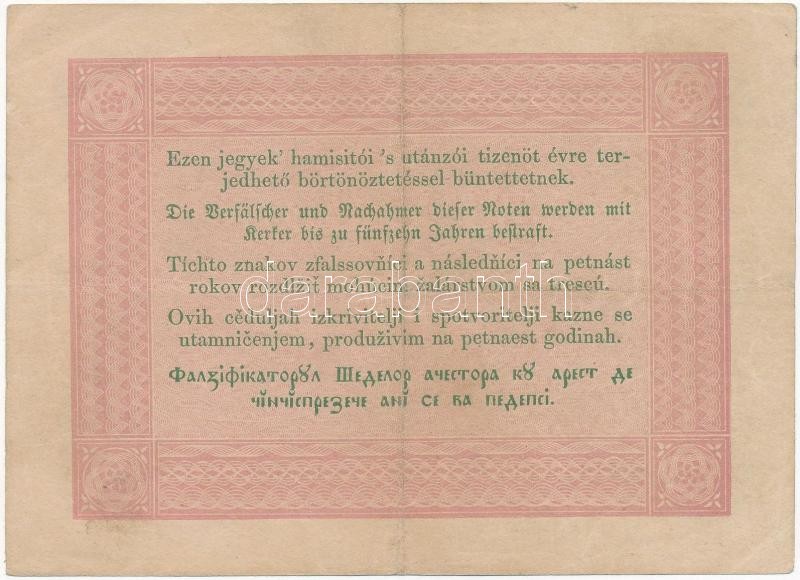 Ezen jegyek’ hamisitói ’s utánzói tizenöt évre ter-
jedhető börtönöztetéssel büntettetnek.
Die Verfälscher und Nachahmer dieser Noten werden mit
Kerker bis zu fünfzehn Jahren bestraft.
Tíchto znakov zfalssovňíci a následňíci na petnást
rokov rozdĺžiť mohúcim žalárstvom sa trescú.
darabanth
Ovih cěduljah izkrivitelji i spotvoritelji kazne se
utamničenjem, produživim na petnaest godinah.
Фалꙁіфікаторꙋл Шеделор ачестора кꙋ арест де
чі́нчіспреꙁече ані се ва педепсі.